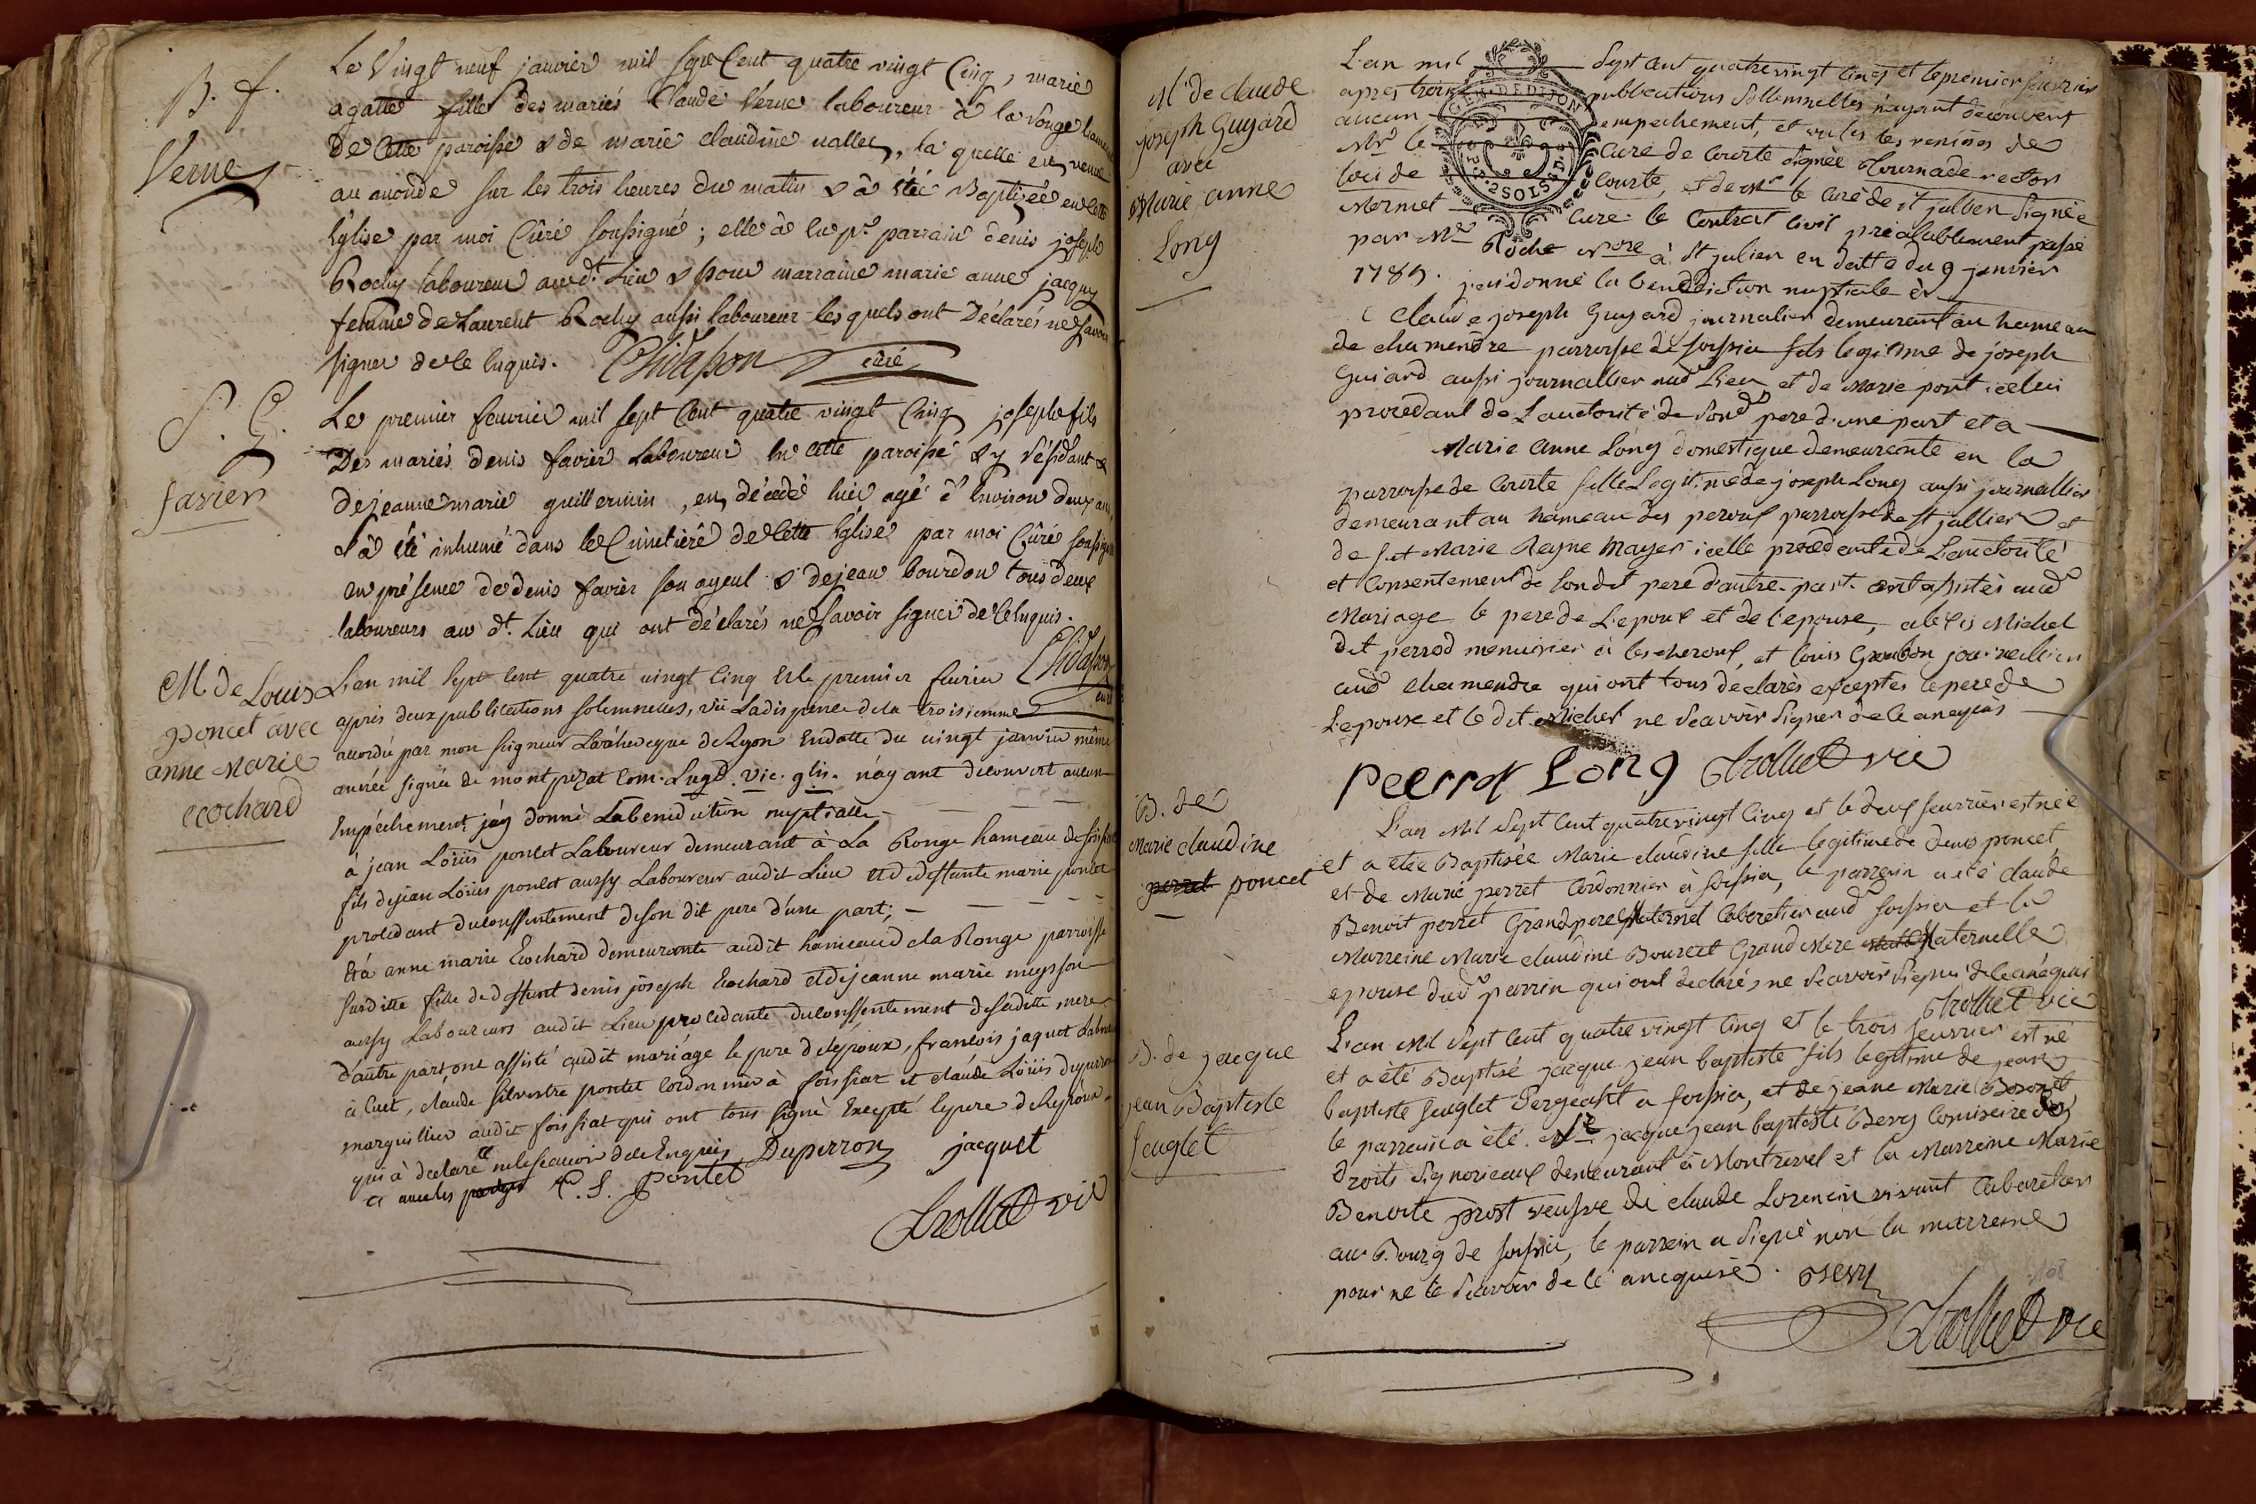 B. f.
Verne
Le Vingt neuf janvier mil sept Cent quatre vingt Cinq, marie
agatte fille des mariés Claude Verne laboureur à la Ronge hameau
de Cette paroisse & de marie claudine vallet, la quelle est venue
au monde sur les trois heures du matin & à été Baptisée en cette
Eglise par moi Curé soussigné; elle à eu pr. parrain denis joseph
Rochy laboureur aud.t Lieu & pour marraine marie anne jacquy
femme de Laurent Rochy aussi laboureur lesquels ont Déclarés ne savoir
signer de ce Enquis. Chidasson curé
S. G.
favier
Le premier fevrier mil sept Cent quatre vingt Cinq joseph fils
Des mariés denis favier Laboureur en cette paroisse & y résidant &
de jeanne marie guillermin, est décédé hier agé d'Environ deux ans,
& à été inhumé dans le Cimetiere de cette Eglise par moi Curé soussigné
en présence de denis favier son ayeul & de jean bourdon tous deux
laboureurs au dt. Lieu qui ont déclarés ne savoir signer de ce Enquis.
Chidasson curé
M. de Louis
poncet avec
anne Marie
ecochard
L'an mil sept cent quatre vingt cinq et le premier fevrier
après deux publications solemnelles, vû La dispense de la troisiemme
accordée par mon seigneur L'archevêque de Lyon En datte du vingt janvier même
année signée de montpezat com. Lugd. vic. glis. n'ayant découvert aucun
Empéchement j'ay donné La benediction nuptialle
à jean Loüis poncet Laboureur demeurant à La Ronge hameau de foissiat
fils de jean Loüis poncet aussy Laboureur audit Lieu et de deffunte marie poncet
procedant du conssentement de son dit pere d'une part;
Et à anne marie Ecochard demeurante audit hameau de la Ronge parroisse
susditte fille de deffunt denis joseph Ecochard et de jeanne marie meysson
aussy Laboureurs audit Lieu procedante du conssentement de sa ditte mere
d'autre part ont assisté audit mariage le pere de l'epoux, francois jaquet Laboureur
à Cuet, claude silvestre pontet cordonnier à foissiat et claude Loüis duperron
marguillier audit foissiat qui ont tous signé Excepté le pere de l'epoux
qui à declaré ne le scavoir de ce Enquis Duperron jacquet
C. S. pontet
Trolliet vic
M de claude
joseph Guyard
avec
Marie anne
Long
L'an mil Sept Cent quatre vingt Cinq et le premier fevrier
apres trois publications Sollemnelles n'ayant decouvert
aucun empechement, et vu les les remises de
Mr. le Curé de Courte Signée Tournade rector
loci de Courte, et de Mr le Curé de st jullien Signée
Mermet Curé. le Contrat Civil prealablement passé
par Me Roche Nore à St julien en datte du 9 janvier
1785. j'ai donné la benediction nuptiale à
Claude joseph Guyard journalier demeurant au hameau
de chamendre parroisse de foissia fils legitime de joseph
Guiard aussi journallier aud Lieu et de Marie pont icelui
procedant de L'auctorité de Sond pere d'une part et a
Marie Anne Long domestique demeurante en la
parroisse de Courte fille Legitime de joseph Long aussi journallier
demeurant au hameau des peroux parroisse de st jullien et
de f.t Marie Reyne Mayer icelle procedante de L'auctorité
et Consentement de Son dt pere d'autre part. ont assistés aud
Mariage le pere de L'epoux et de l'epouse, alexis Michel
dit perrod menuisier à lescheroux, et louis Goubon journallier
aud Chamendre qui ont tous declarés exceptés le pere de
L'epouse et le dit Michel ne Scavoir Signer de ce enquis
Peerrot Long Trolliet vic
B. de
Marie claudine
perret poncet
L'an Mil Sept Cent quatre vingt Cinq et le deux fevrier est née
et a etée Baptisée Marie claudine fille legitime de Denis poncet
et de Marie perret Cordonnier à foissia, le parrein a été claude
Benoit perret Grand pere Maternel Cabaretier aud foissia et la
Marreine Marie claudine Bourcet Grand Mere Maternelle
epouse dud parrin qui ont declarés ne Scavoir Signer de ce enquis
Trolliet vic
B. de jacque
jean Baptiste
feuglet
L'an Mil Sept Cent quatre vingt Cinq et le trois fevrier est né
et a été Baptisé jacque jean baptiste fils legitime de jean
baptiste feuglet Sergeant a foissia, et de jeane Marie
le parrain a été Mr. jacque jean baptiste Bevy Comissaire des
droits Signorieaux demeurant à Montrevel et la Marreine Marie
Benoite prost veufve de claude Lorencin vivant Cabaretier
au Bourg de foissia, le parrein a Signé non la marreine
pour ne le Scavoir de ce ancquise. Bevy
Trolliet vic
GEN. DE DIJON
2. SOLS